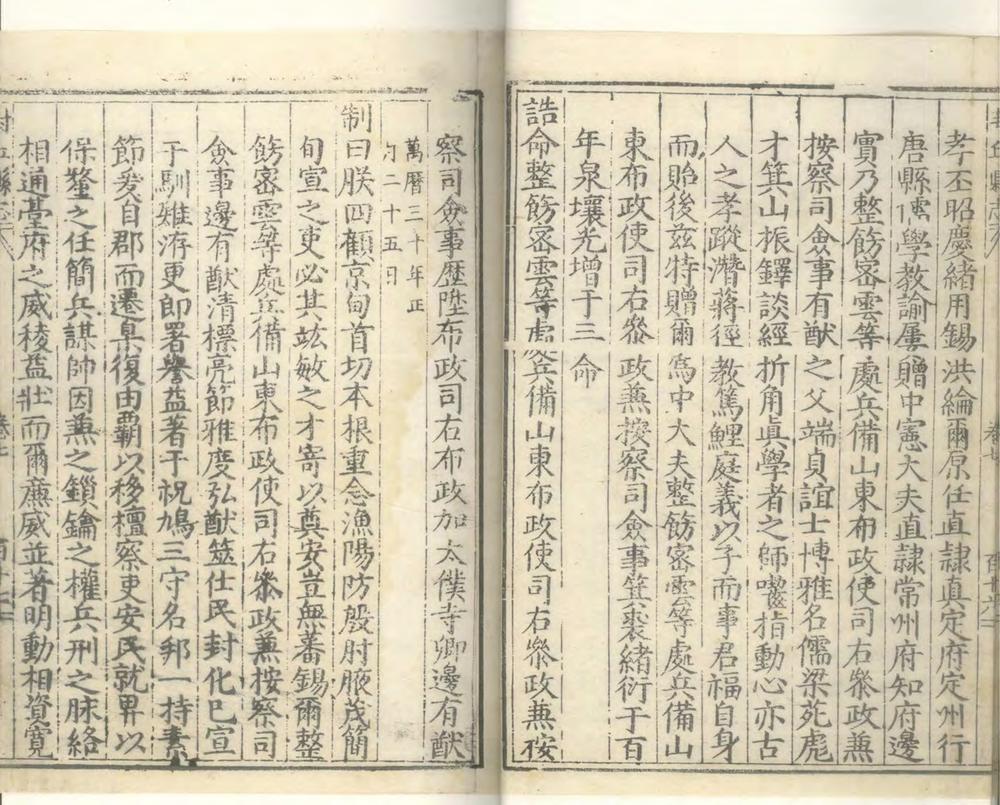 孝丕昭慶緒用錫洪綸爾原任直隷真定府定州行
唐縣儒學教諭屢贈中憲大夫直隷常州府知府邊
實乃整飭密雲等處兵備山東布政使司右叅政兼
按察司僉事有猷之父端貞誼士博雅名儒梁苑彪
才箕山振鐸談經折角眞學者之師嚙指動心亦古
人之孝蹤潛蔣徑教篤鯉庭義以子而事君福自身
而貽後兹特贈爾爲中大夫整飭密雲等處兵備山
東布政使司右叅政兼按察司僉事箕裘緒衍于百
年泉壤光增于三命
誥命整飭密雲等處兵備山東布政使司右叅政兼按
察司僉事歴陞布政司右布政加太僕寺卿邊有猷
萬曆三十年正
月二十五日
制曰朕四顧京甸首切本根重念漁陽防殷肘腋茂簡
旬宣之吏必其竑敏之才寄以奠安豈無蕃錫爾整
飭密雲等處兵備山東布政使司右叅政兼按察司
僉事邊有猷清標亮節雅度弘猷筮仕民封化已宣
于馴雉洊更郎署譽益著于祝鳩三守名邦一持素
節爰自郡而遷臬復由覇以移檀察吏安民就畀以
保釐之任簡兵謀帥因兼之鎖鑰之權兵刑之脉絡
相通臺府之威稜益壯而爾亷威並著明動相資寛